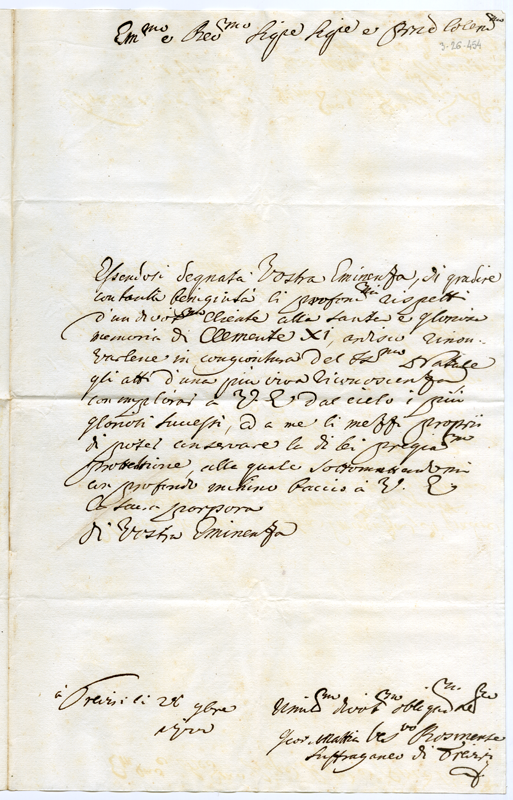 Em.mo e Rev.mo Sig.re Sig.re e Pad. Colen.mo
3-26-454
Essendosi degnata Vostra Eminenza, di gradire
con tanta benignità li profon.mi rispetti
d'un divot.mo Cliente alla santa e gloriosa
memoria di Clemente XI, ardisco rinon-
varlene in congiontura del SS.mo Natale
gli atti d'una più viva riconoscenza
con implorar à V. E. dal cielo i più
gloriosi successi, ed a me li mezzi proprii
di poter conservare la di lei pregia.ma
protettione, alla quale sottomettendomi
con profondo inchino baccio à V. E.
la sacra porpora
di Vostra Eminenza
à Treviri li 28 9bre
Umil.mo divot.mo obligat.mo
Gio: Mattia Ves.vo Rosmense
Suffraganeo di Treviri